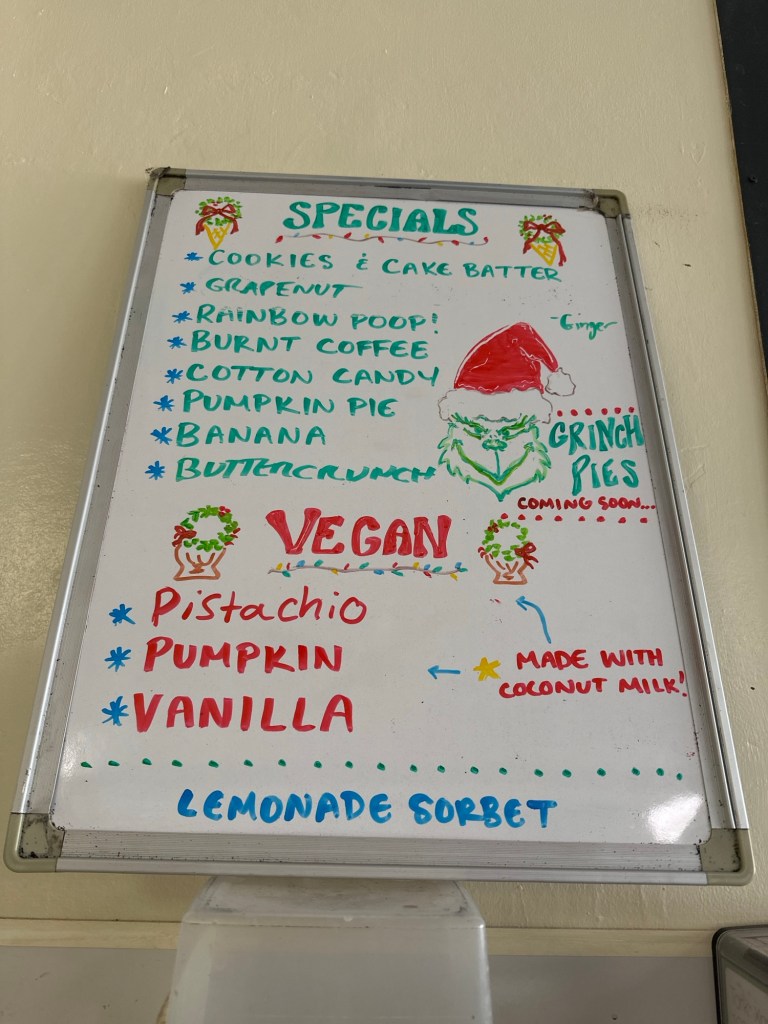 SPECIALS
* COOKIES & CAKE BATTER
* GRAPENUT
* RAINBOW POOP!
* BURNT COFFEE
* COTTON CANDY
* PUMPKIN PIE
* BANANA
* BUTTERCRUNCH
-Ginger
GRINCH
PIES
COMING SOON...
VEGAN
* Pistachio
* PUMPKIN
* VANILLA
* MADE WITH
COCONUT MILK!
LEMONADE SORBET